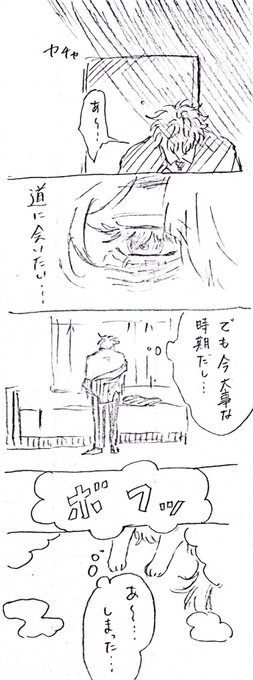 ガチャ
あ〜…
道に会いたい…
でも今大事な
時期だし…
ボフッ
あ〜…
しまった…